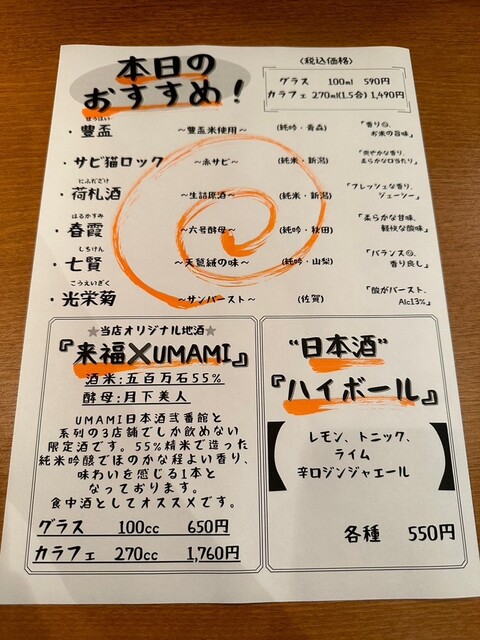 本日の
おすすめ！
〈税込価格〉
グラス 100ml 590円
カラフェ 270ml(1.5合) 1,490円
ほうはい
・豊盃 ～豊盃米使用～ (純吟・青森) 「香り◎、
お米の旨味」
・サビ猫ロック ～赤サビ～ (純米・新潟) 「爽やかな香り、
柔らかな口当たり」
にふだざけ
・荷札酒 ～生詰原酒～ (純米・新潟) 「フレッシュな香り、
ジューシー」
はるかすみ
・春霞 ～六号酵母～ (純吟・秋田) 「柔らかな甘味、
軽快な酸味」
しちけん
・七賢 ～天鵞絨の味～ (純吟・山梨) 「バランス◎、
香り良し」
こうえいぎく
・光栄菊 ～サンバースト～ (佐賀) 「酸がバースト、
Alc13%」
★当店オリジナル地酒★
『来福×UMAMI』
酒米:五百万石55%
酵母:月下美人
UMAMI日本酒弐番館と
系列の3店舗でしか飲めない
限定酒です。55%精米で造った
純米吟醸でほのかな程よい香り、
味わいを感じる1本と
なっております。
食中酒としてオススメです。
グラス 100cc 650円
カラフェ 270cc 1,760円
“日本酒”
『ハイボール』
レモン、トニック、
ライム
辛口ジンジャエール
各種 550円